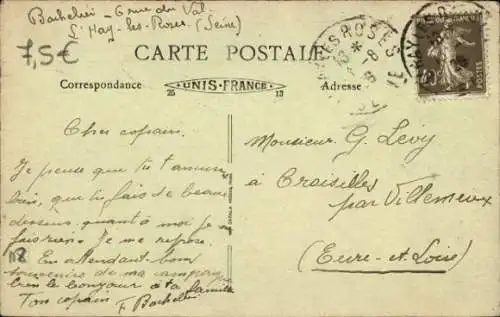 Bachelier - 6 rue du Val.
L'Hay-les-Roses (Seine)
7,5€
CARTE POSTALE
Correspondance
UNIS-FRANCE
25 13
Adresse
ROSES
Cher copain.
Je pense que tu t'amuses
bien, que tu fais de beaux
dessins, quant à moi je ne
fais rien. Je me repose.
En attendant bons
souvenirs de ma campagne
bien le bonjour à ta famille
Ton copain F. Bachelier
Monsieur G. Lévy
à Croisilles
par Villemeux
(Eure-et-Loire)